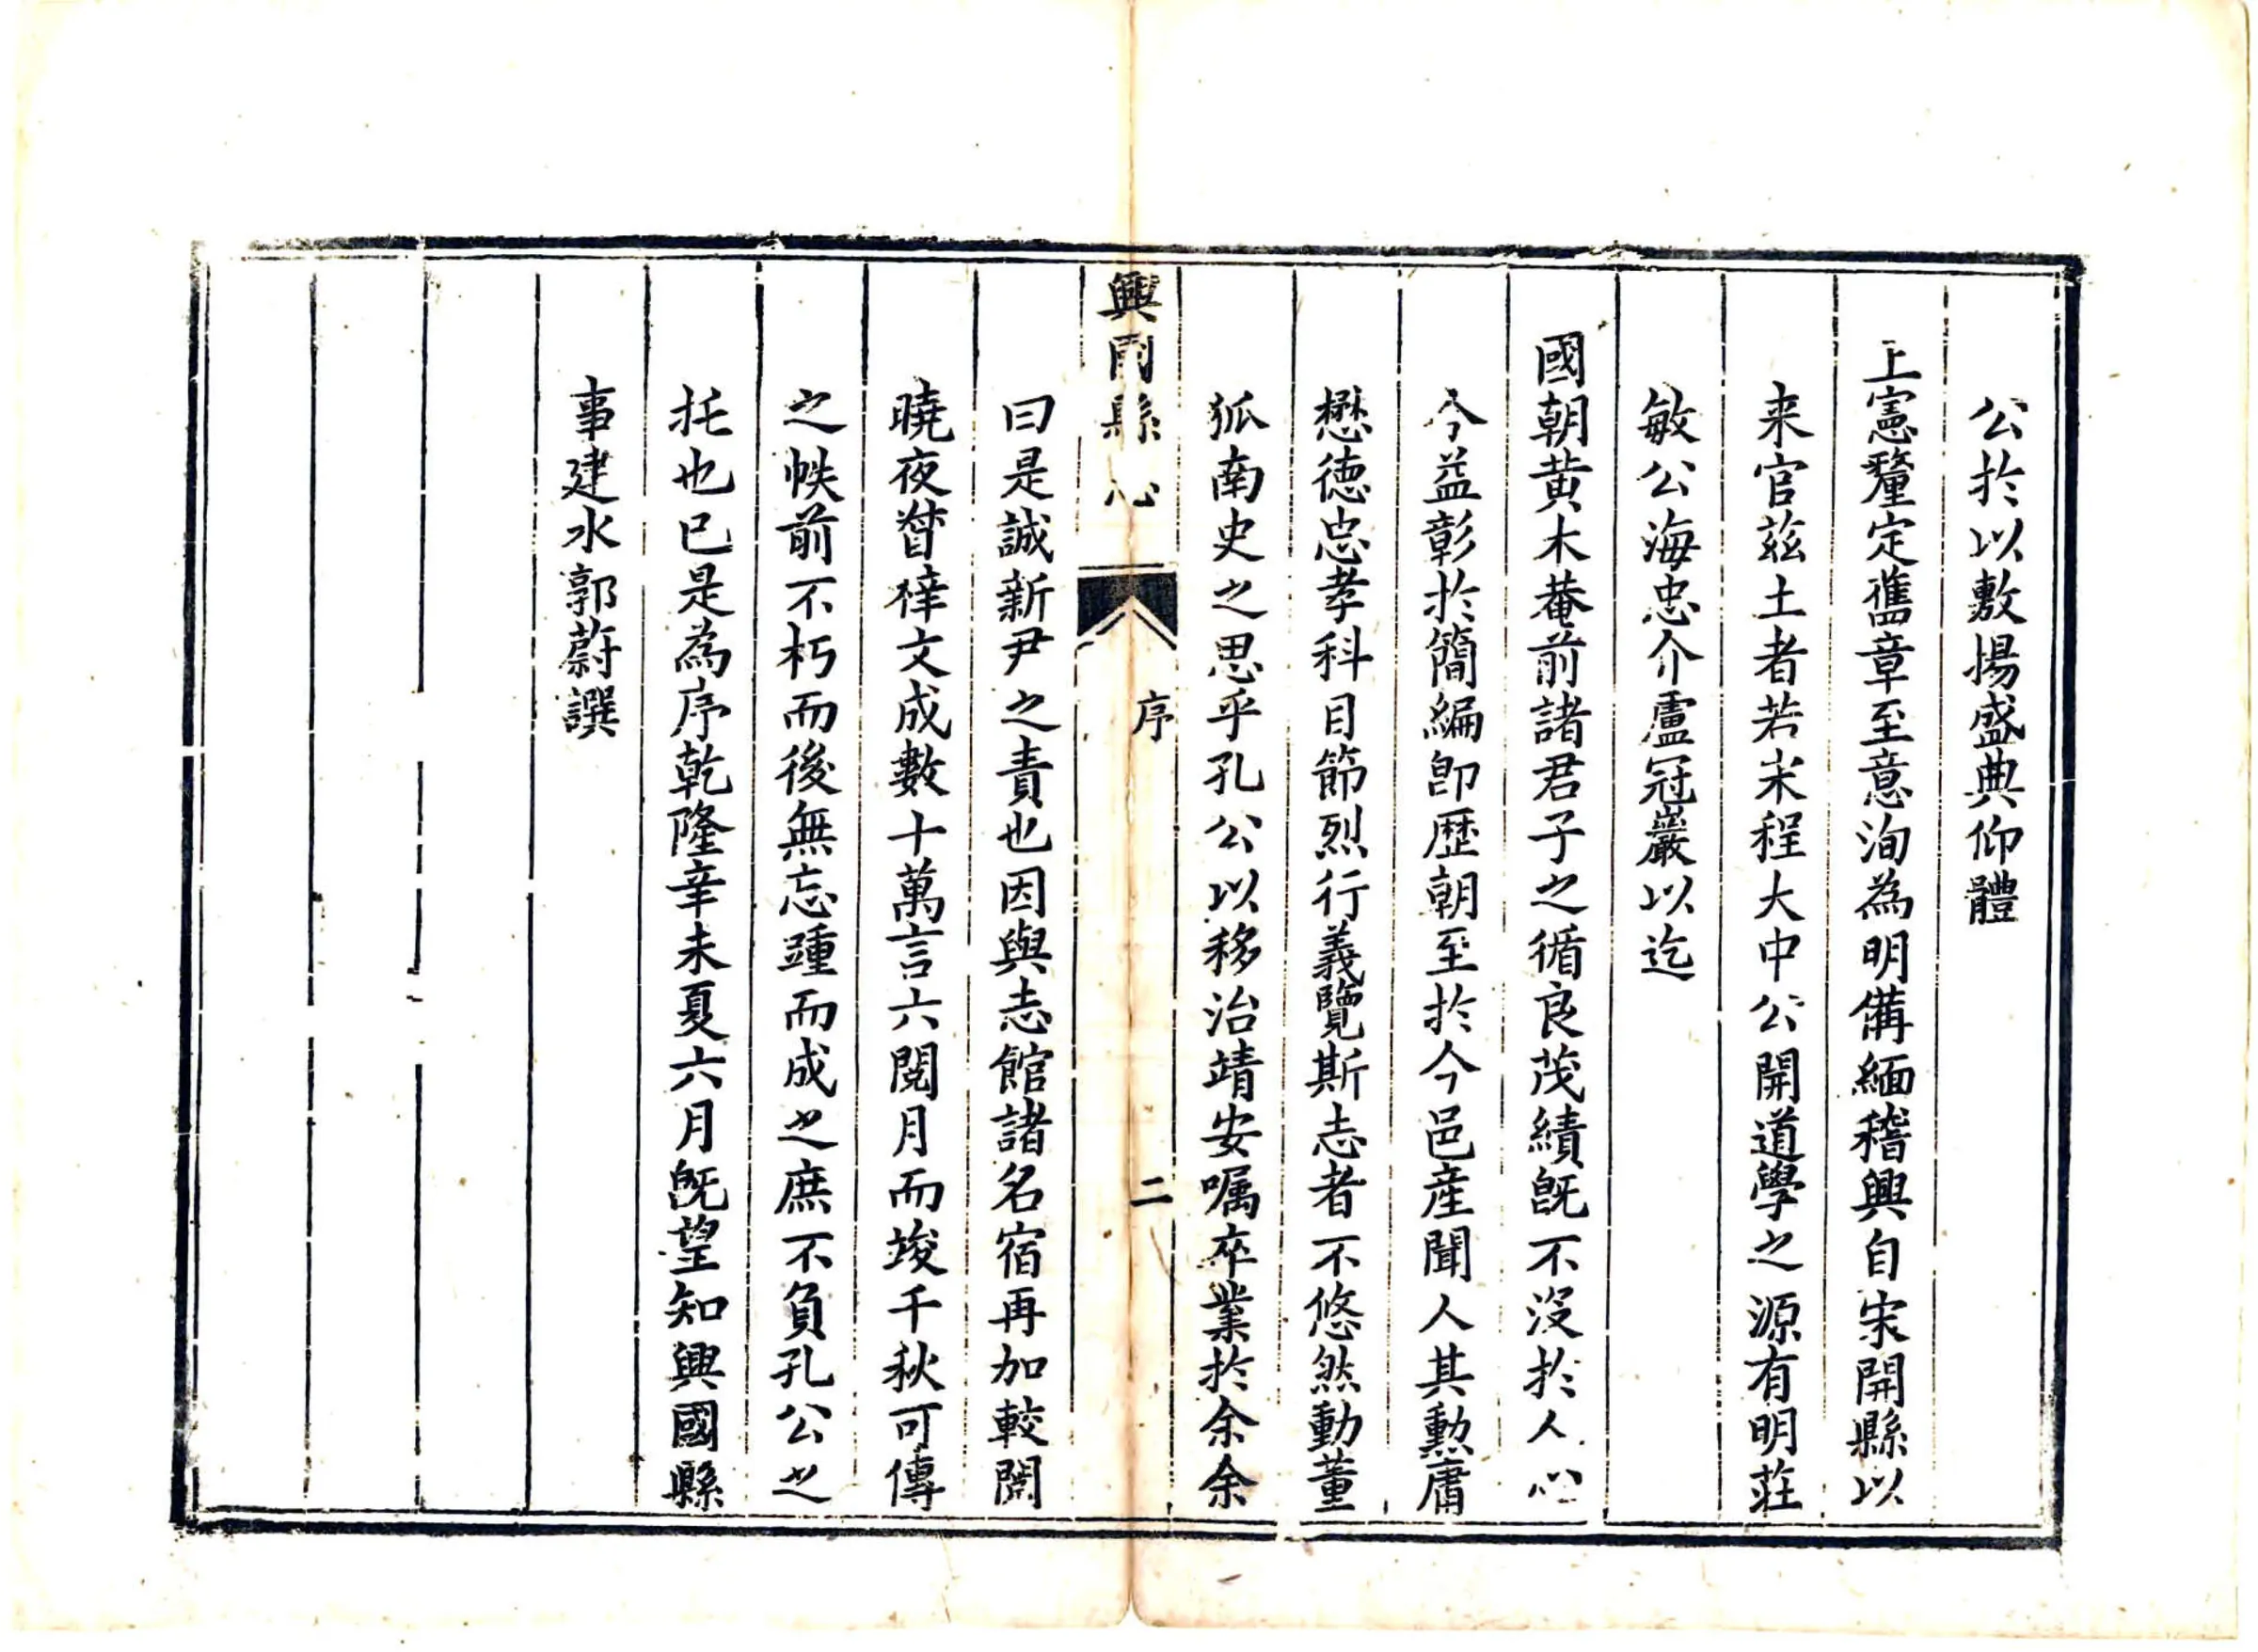 公於以敷揚盛典仰體
上憲釐定舊章至意洵為明備緬稽興自宋開縣以
来官茲土者若宋程大中公開道學之源有明莊
敏公海忠介盧冠巖以迄
國朝黄木菴前諸君子之循良茂績旣不沒扵人心
今益彰扵簡編卽歴朝至扵今邑産聞人其勲庸
懋德忠孝科目節烈行義覽斯志者不悠然動董
狐南史之思乎孔公以移治靖安嘱卒業扵余余
興國縣志
序
二
曰是誠新尹之責也因與志館諸名宿再加較閱
曉夜督梓文成數十萬言六閱月而竣千秋可傳
之帙前不朽而後無忘踵而成之庶不負孔公之
托也已是為序乾隆辛未夏六月旣望知興國縣
事建水郭蔚譔